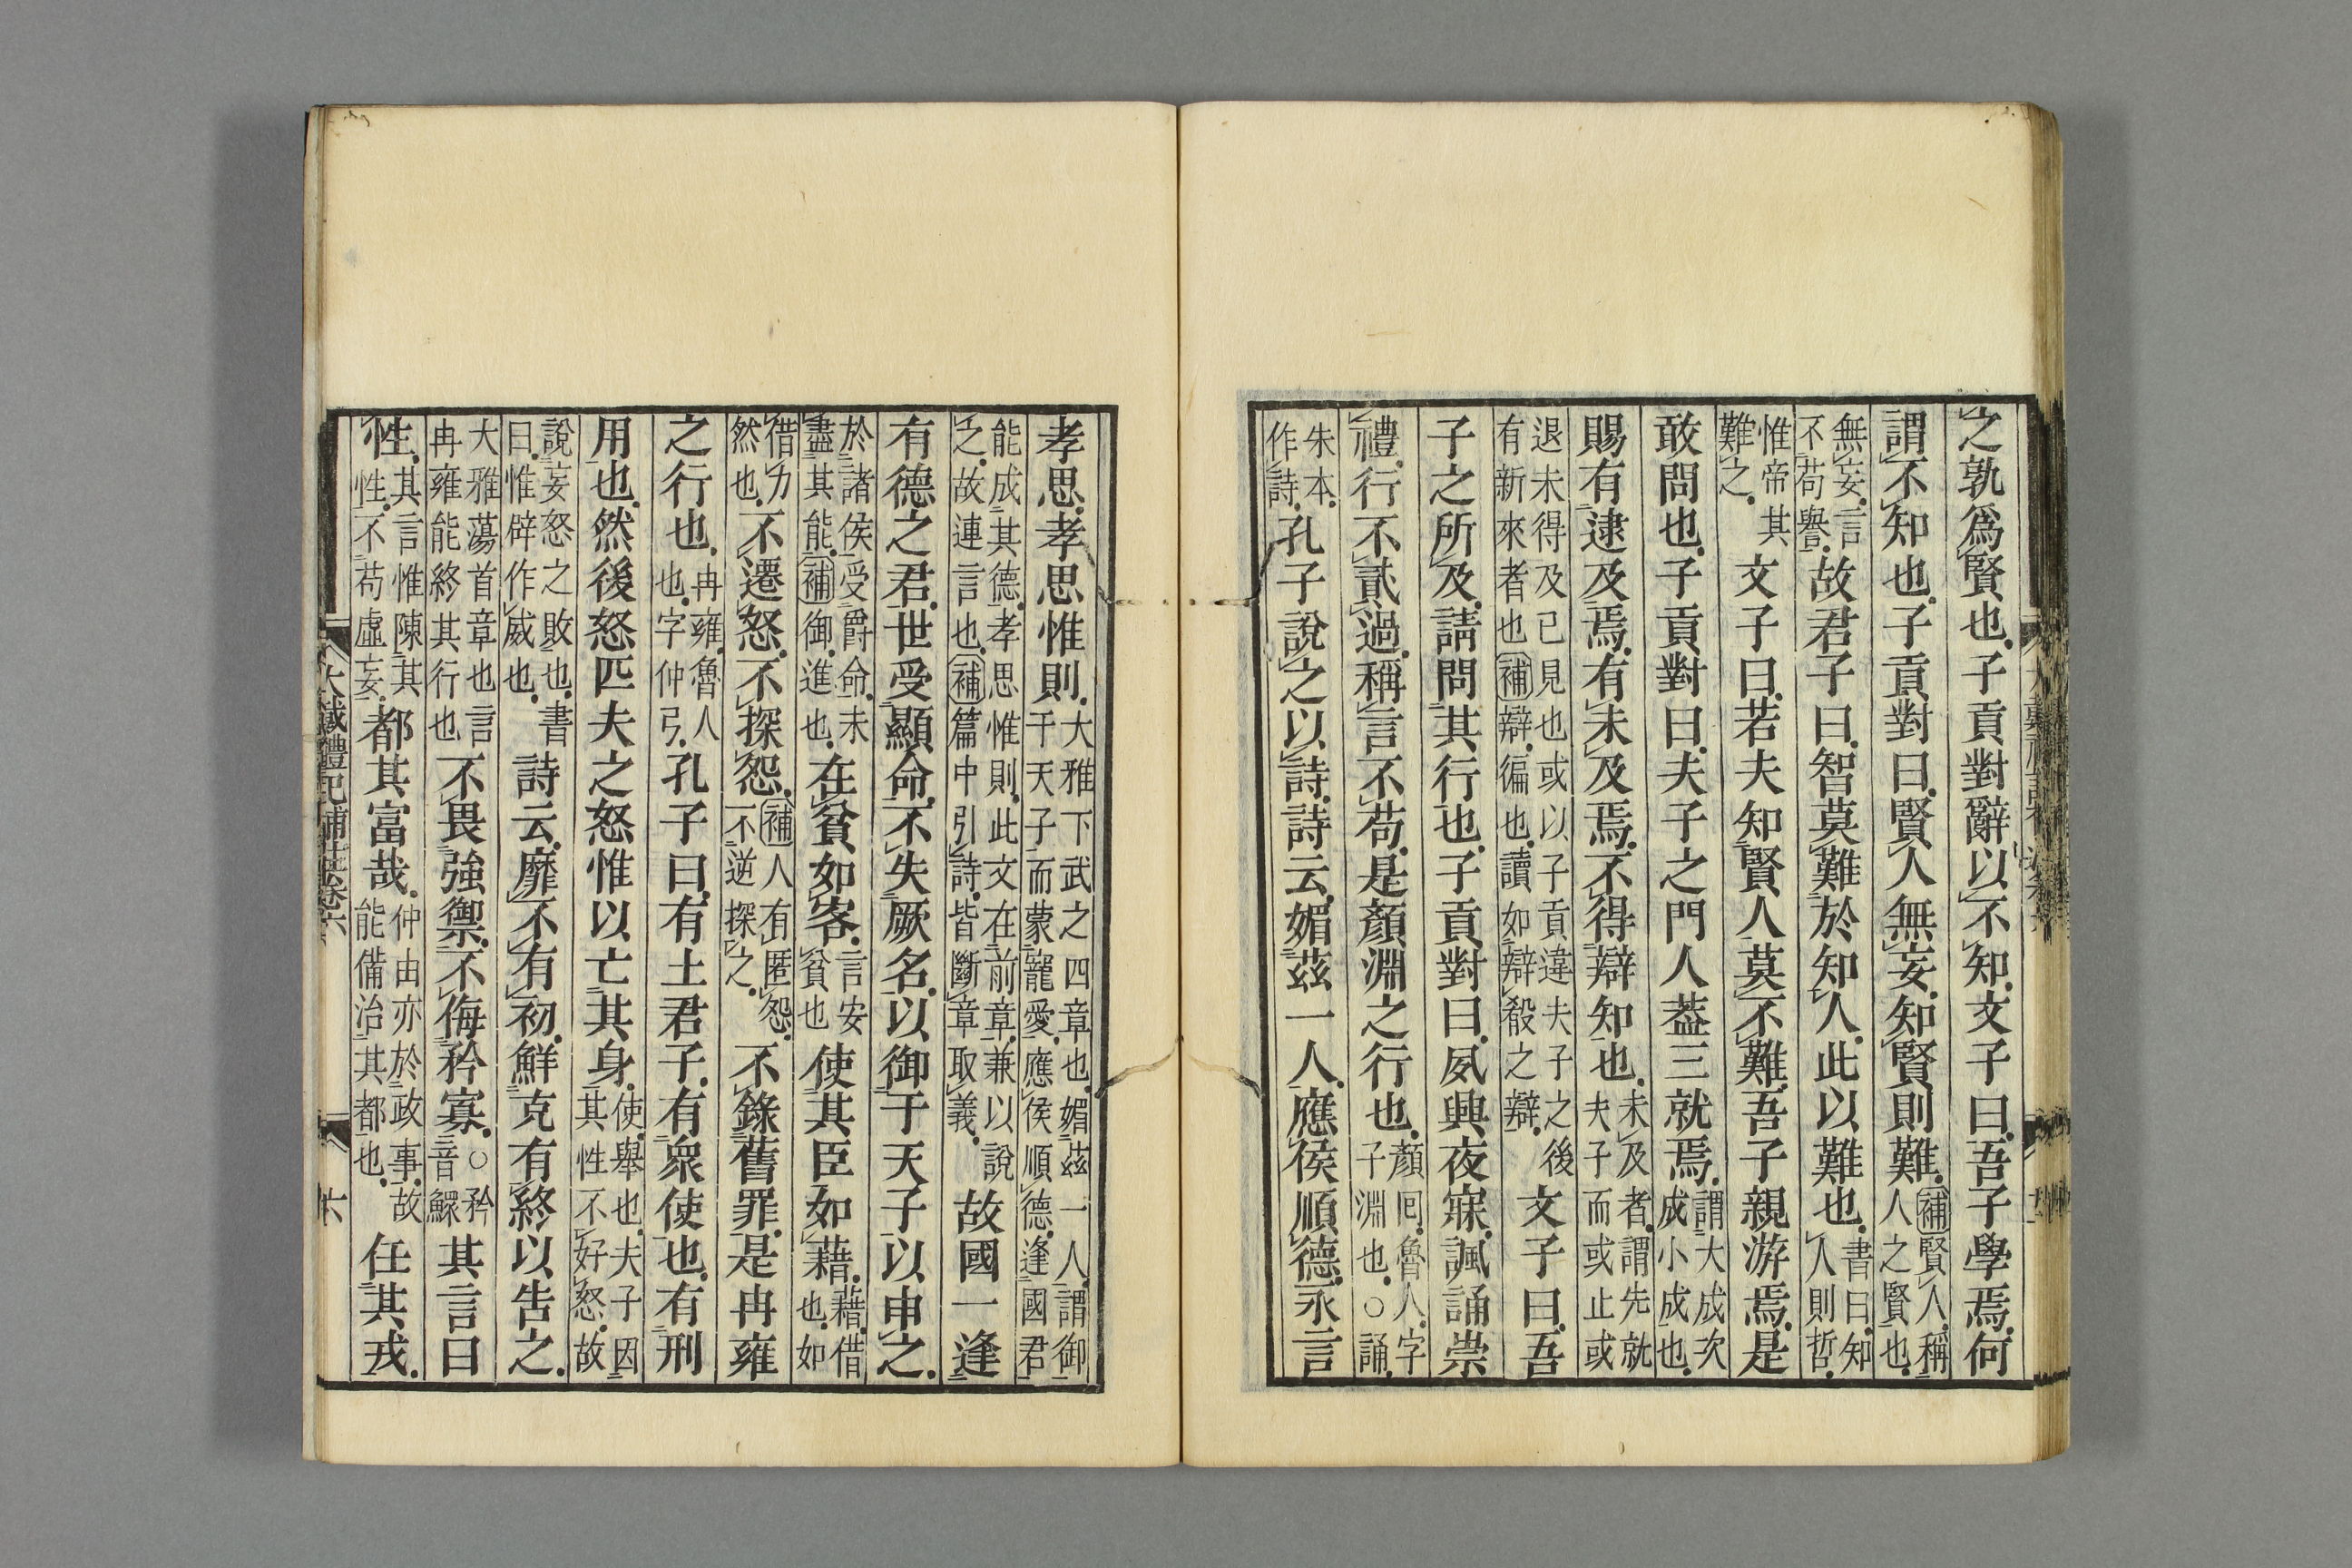 之孰爲賢也。子貢對辭以不知。文子曰。吾子學焉。何
謂不知也。子貢對曰。賢人無妄。知賢則難。補賢人。稱人之賢也。
無妄言不苟譽。故君子曰。智莫難於知人。此以難也。書曰。知人則哲。
惟帝其難之。文子曰。若夫知賢人莫不難。吾子親游焉。是
敢問也。子貢對曰。夫子之門人葢三就焉。謂大成次成小成也。
賜有逮及焉。有未及焉。不得辯知也。未及者。謂先就夫子而或止或
退未得及已見也或以子貢違夫子之後有新來者也補辯。徧也。讀如辯殽之辯。文子曰。吾
子之所及。請問其行也。子貢對曰。夙興夜寐。諷誦崇
禮。行不貳過。稱言不苟。是顏淵之行也。顏囘。魯人。字子淵也。○誦。
朱本。作詩。孔子說之以詩。詩云。媚茲一人。應侯順德。永言
孝思。孝思惟則。大雅下武之四章也。媚茲一人。謂御于天子而蒙寵愛。應侯順德。逢國君
能成其德。孝思惟則。此文在前章。兼以說之。故連言也。補篇中引詩。皆斷章取義。故國一逢
有德之君。世受顯命。不失厥名。以御于天子以申之。
於諸侯受爵命。未盡其能。補御。進也。在貧如客。言安貧也使其臣如藉。藉。借也。如
借力然也。不遷怒。不探怨。補人有匿怨。不逆探之。不錄舊罪。是冉雍
之行也。冉雍。魯人也。字仲弓。孔子曰。有土君子。有衆使也。有刑
用也。然後怒。匹夫之怒惟以亡其身。使。舉也。夫子因其性不好怒。故
說妄怒之敗也。書曰。惟辟作威也。詩云。靡不有初。鮮克有終。以告之。
大雅蕩首章也言冉雍能終其行也不畏強禦。不侮矜寡。○矜音鰥其言曰
性。其言惟陳其性。不苟虛妄。都其富哉。仲由亦於政事。故能備治其都也。任其戎。
大戴禮記補註卷六 六